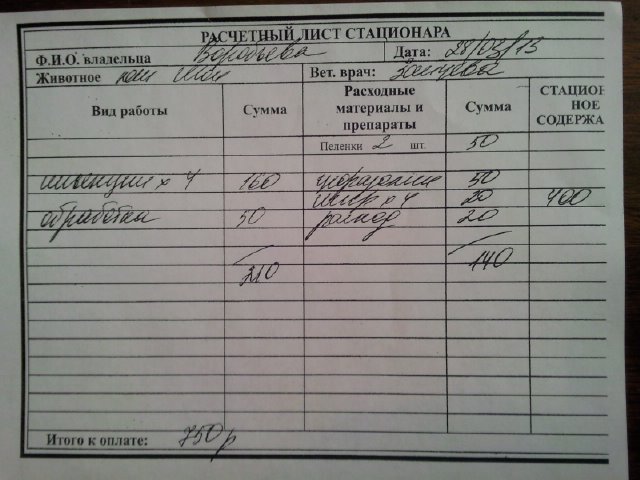 РАСЧЕТНЫЙ ЛИСТ СТАЦИОНАРА
Ф.И.О. владельца Воробьева Дата: 28/03/13
Животное кот Вет. врач: Зайцева
Вид работы Сумма Расходные материалы и препараты Сумма СТАЦИОН НОЕ СОДЕРЖА
Пеленки 2 шт. 50
инъекции х 4 160 50
х 4 20 400
обработка 50 расход 20
210 140
Итого к оплате: 750 р